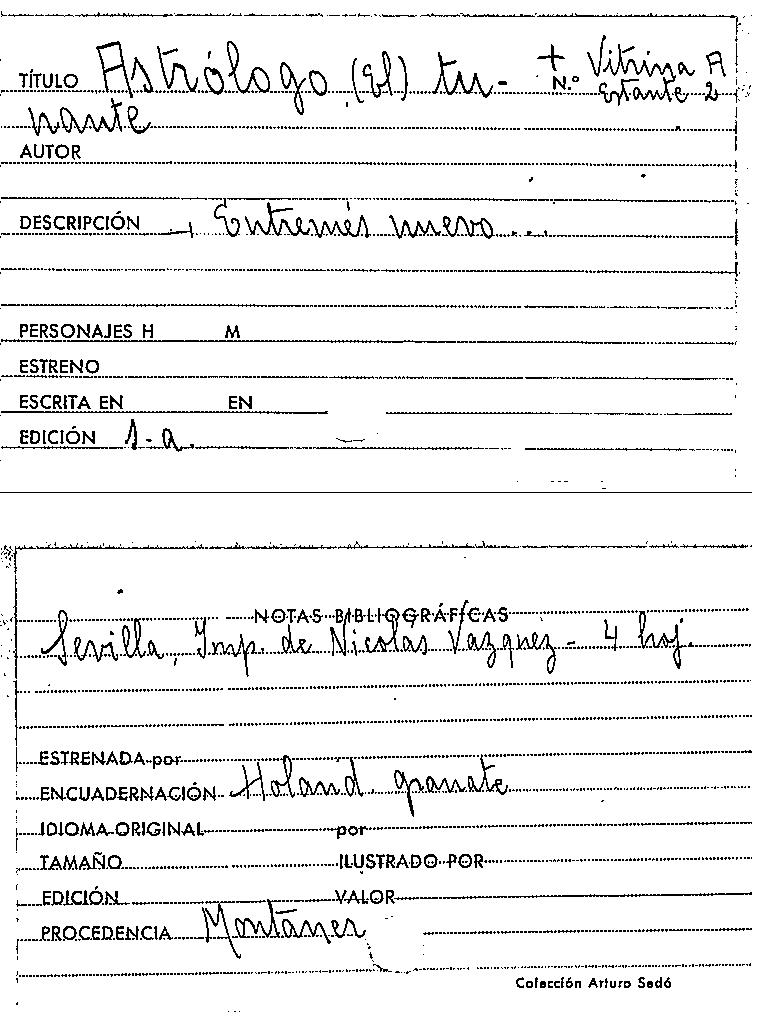 TÍTULO Astrólogo (El) tu- + Vitrina A
N.º Estante 2
nante
AUTOR
DESCRIPCIÓN Entremés nuevo...
PERSONAJES H M
ESTRENO
ESCRITA EN EN
EDICIÓN s-a.
NOTAS BIBLIOGRÁFICAS
Sevilla, Imp. de Nicolás Vazquez - 4 hoj.
ESTRENADA por
ENCUADERNACIÓN Holand. granate
IDIOMA ORIGINAL por
TAMAÑO ILUSTRADO POR
EDICIÓN VALOR
PROCEDENCIA Montaner
Colección Arturo Sedó